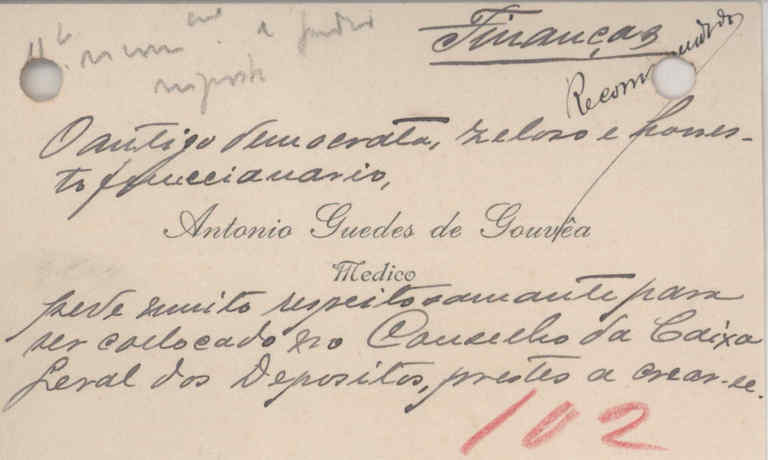 Finanças
Recommendado
O antigo democrata, zeloso e hones-
to funccionario,
Antonio Guedes de Gouvêa
Medico
pede muito respeitosamente para
ser collocado no Conselho da Caixa
Geral dos Depositos, prestes a crear-se.
102